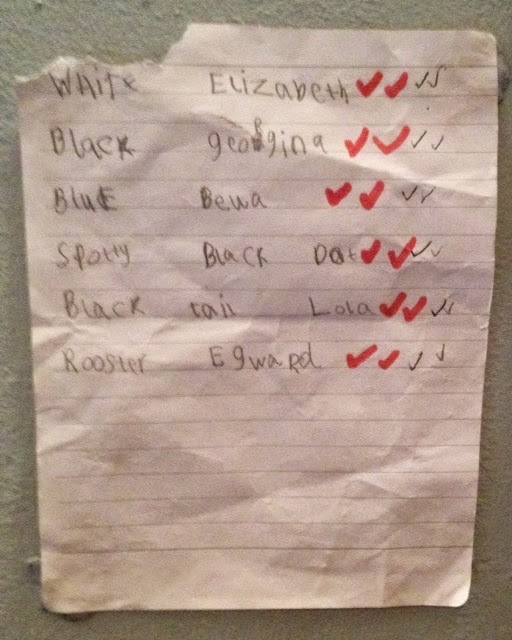 White Elizabeth ✓✓✓✓
Black georgina ✓✓✓✓
Blue Bewa ✓✓✓✓
Spotty Black Dot ✓✓✓✓
Black tail Lola ✓✓✓✓
Rooster Egward ✓✓✓✓